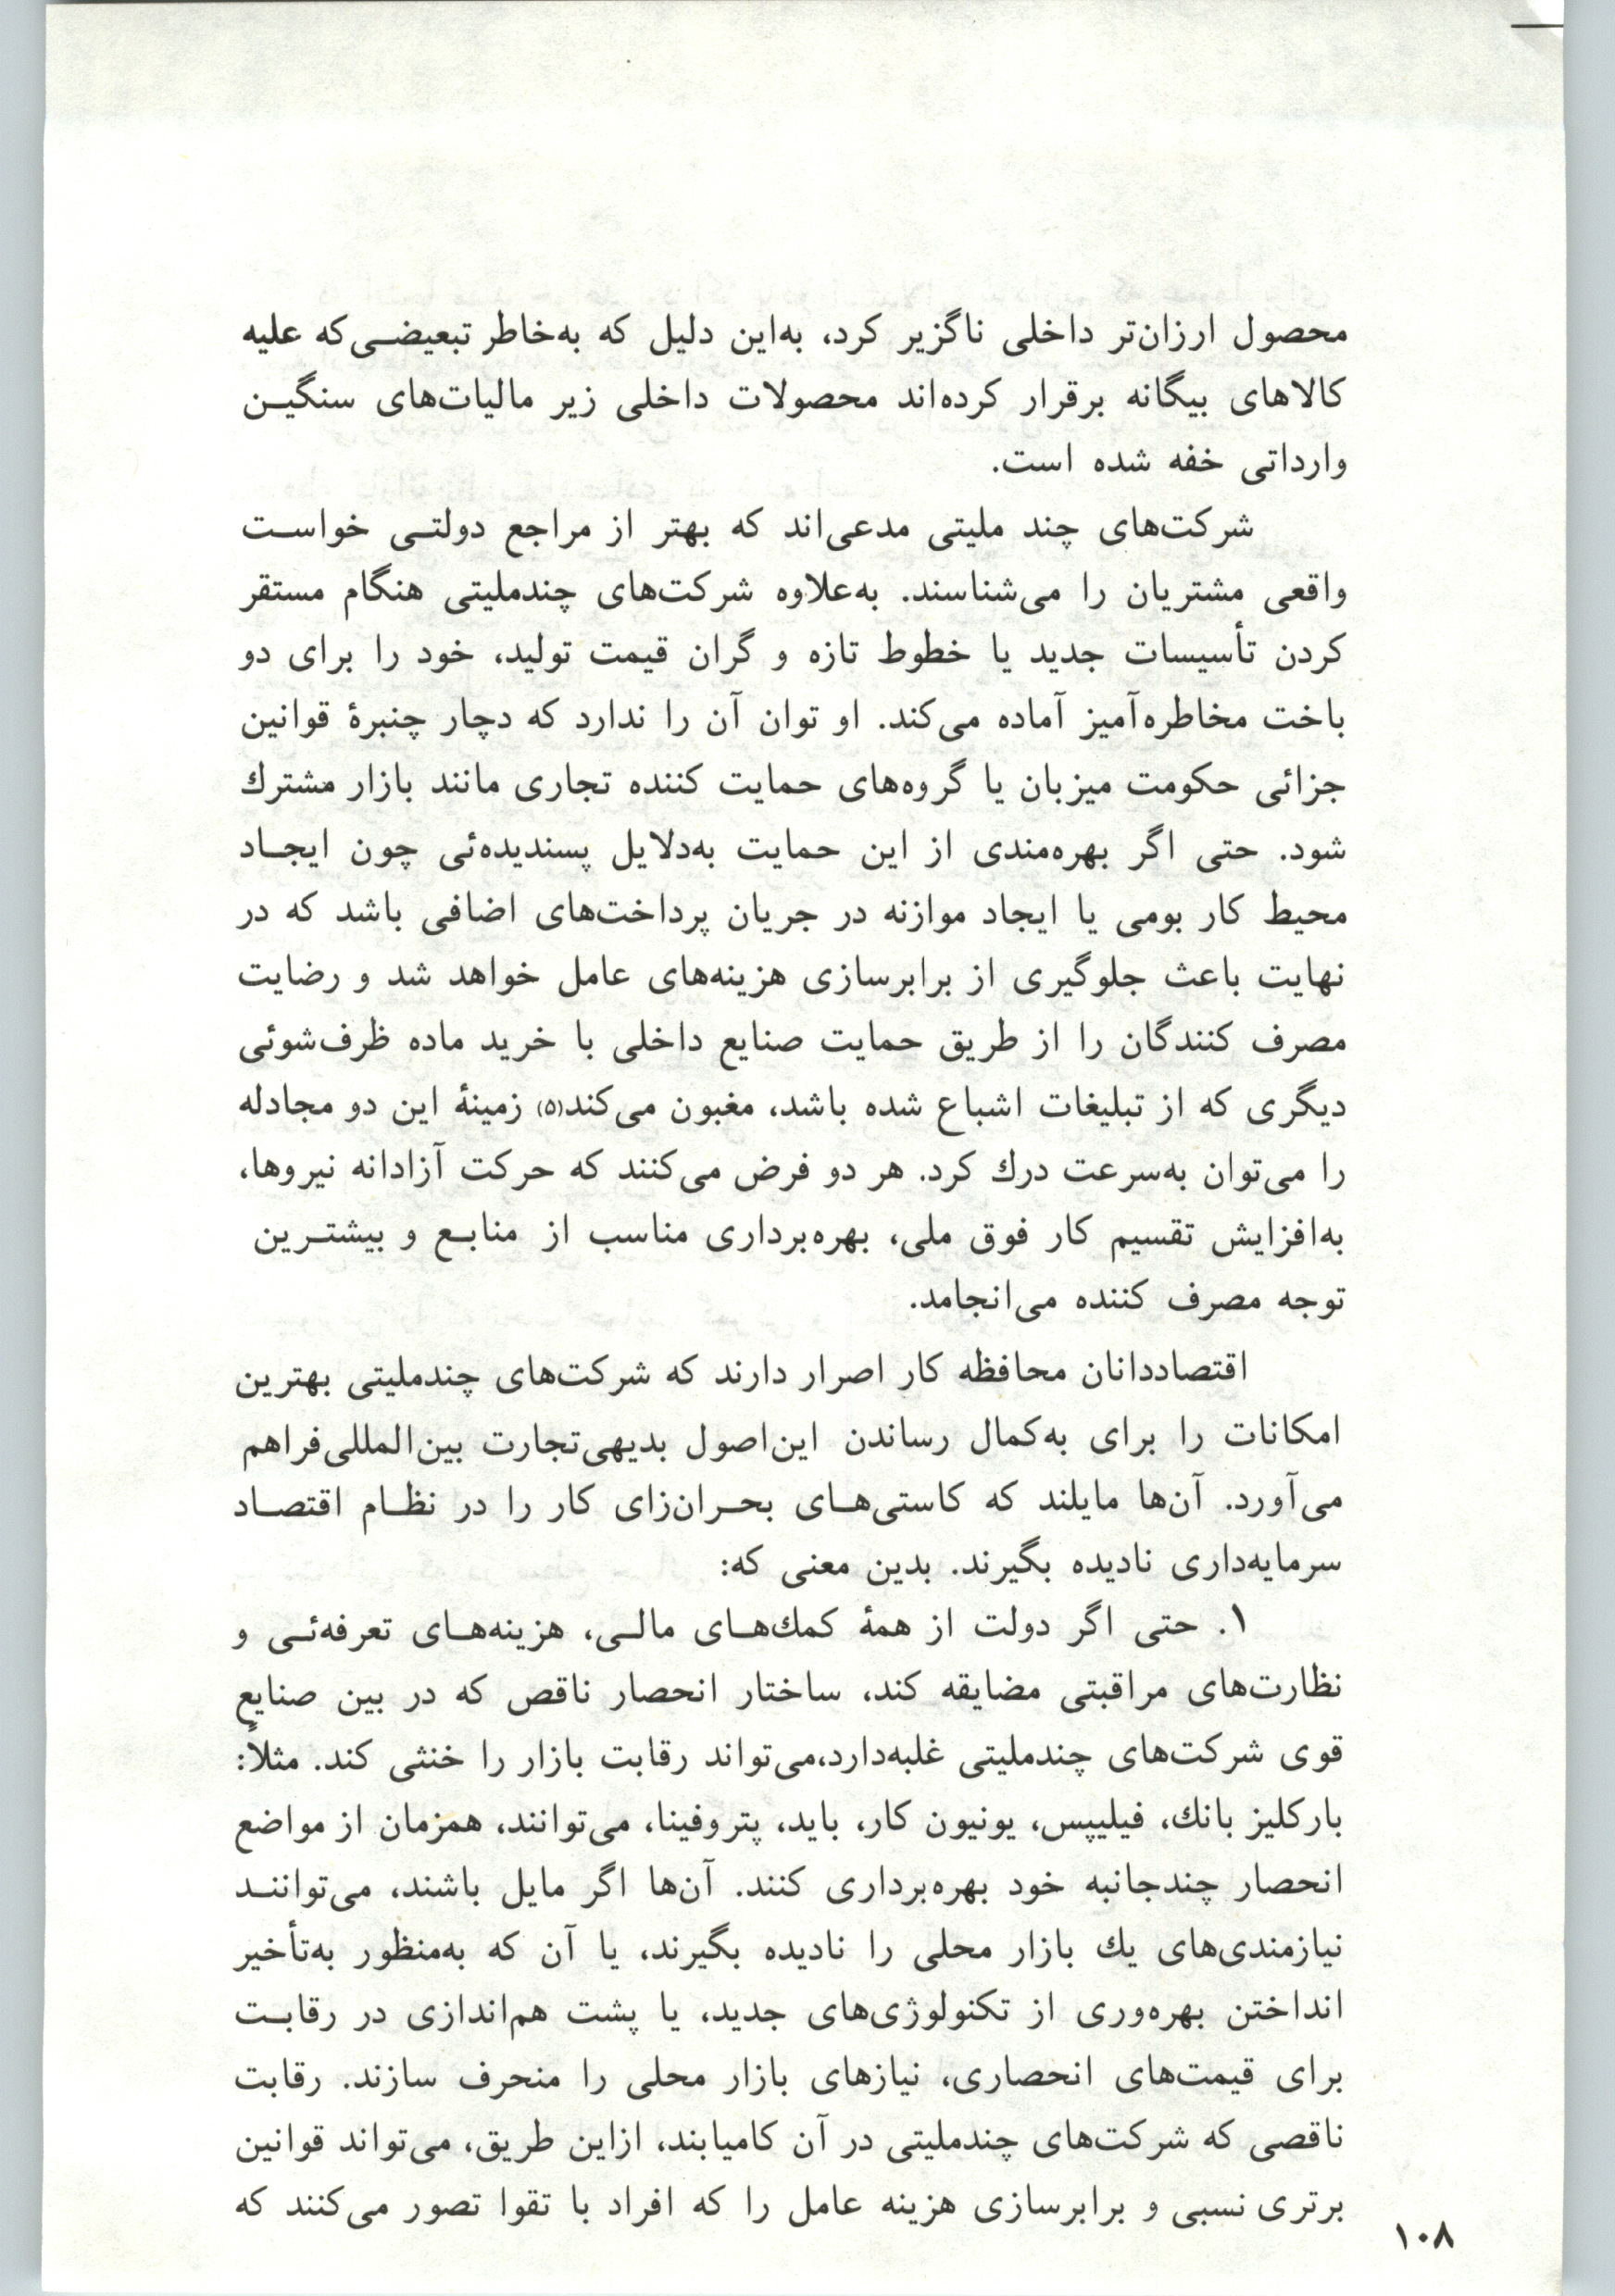 محصول ارزان‌تر داخلی ناگزیر کرد، به‌این دلیل که به‌خاطر تبعیضی‌که علیه
کالاهای بیگانه برقرار کرده‌اند محصولات داخلی زیر مالیات‌های سنگین
وارداتی خفه شده است.
شرکت‌های چند ملیتی مدعی‌اند که بهتر از مراجع دولتی خواست
واقعی مشتریان را می‌شناسند. به‌علاوه شرکت‌های چندملیتی هنگام مستقر
کردن تأسیسات جدید یا خطوط تازه و گران قیمت تولید، خود را برای دو
باخت مخاطره‌آمیز آماده می‌کند. او توان آن را ندارد که دچار چنبرهٔ قوانین
جزائی حکومت میزبان یا گروه‌های حمایت کننده تجاری مانند بازار مشترك
شود. حتی اگر بهره‌مندی از این حمایت به‌دلایل پسندیده‌ئی چون ایجاد
محیط کار بومی یا ایجاد موازنه در جریان پرداخت‌های اضافی باشد که در
نهایت باعث جلوگیری از برابرسازی هزینه‌های عامل خواهد شد و رضایت
مصرف کنندگان را از طریق حمایت صنایع داخلی با خرید ماده ظرف‌شوئی
دیگری که از تبلیغات اشباع شده باشد، مغبون می‌کند(۵) زمینهٔ این دو مجادله
را می‌توان به‌سرعت درك کرد. هر دو فرض می‌کنند که حرکت آزادانه نیروها،
به‌افزایش تقسیم کار فوق ملی، بهره‌برداری مناسب از منابع و بیشترین
توجه مصرف کننده می‌انجامد.
اقتصاددانان محافظه کار اصرار دارند که شرکت‌های چندملیتی بهترین
امکانات را برای به‌کمال رساندن این‌اصول بدیهی‌تجارت بین‌المللی‌فراهم
می‌آورد. آن‌ها مایلند که کاستی‌های بحران‌زای کار را در نظام اقتصاد
سرمایه‌داری نادیده بگیرند. بدین معنی که:
۱. حتی اگر دولت از همهٔ کمك‌های مالی، هزینه‌های تعرفه‌ئی و
نظارت‌های مراقبتی مضایقه کند، ساختار انحصار ناقص که در بین صنایع
قوی شرکت‌های چندملیتی غلبه‌دارد،می‌تواند رقابت بازار را خنثی کند. مثلاً:
بارکلیز بانك، فیلیپس، یونیون کار، باید، پتروفینا، می‌توانند، همزمان از مواضع
انحصار چندجانبه خود بهره‌برداری کنند. آن‌ها اگر مایل باشند، می‌توانند
نیازمندی‌های یك بازار محلی را نادیده بگیرند، یا آن که به‌منظور به‌تأخیر
انداختن بهره‌وری از تکنولوژی‌های جدید، یا پشت هم‌اندازی در رقابت
برای قیمت‌های انحصاری، نیازهای بازار محلی را منحرف سازند. رقابت
ناقصی که شرکت‌های چندملیتی در آن کامیابند، ازاین طریق، می‌تواند قوانین
برتری نسبی و برابرسازی هزینه عامل را که افراد با تقوا تصور می‌کنند که
۱۰۸